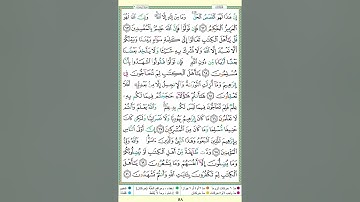 إِنَّ هَٰذَا لَهُوَ ٱلْقَصَصُ ٱلْحَقُّ وَمَا مِنْ إِلَٰهٍ إِلَّا ٱللَّهُ وَإِنَّ ٱللَّهَ لَهُوَ
ٱلْعَزِيزُ ٱلْحَكِيمُ ٦٢ فَإِن تَوَلَّوْا۟ فَإِنَّ ٱللَّهَ عَلِيمٌۢ بِٱلْمُفْسِدِينَ ٦٣
قُلْ يَٰٓأَهْلَ ٱلْكِتَٰبِ تَعَالَوْا۟ إِلَىٰ كَلِمَةٍ سَوَآءٍۭ بَيْنَنَا وَبَيْنَكُمْ
أَلَّا نَعْبُدَ إِلَّا ٱللَّهَ وَلَا نُشْرِكَ بِهِۦ شَيْـًٔا وَلَا يَتَّخِذَ بَعْضُنَا
بَعْضًا أَرْبَابًا مِّن دُونِ ٱللَّهِ فَإِن تَوَلَّوْا۟ فَقُولُوا۟ ٱشْهَدُوا۟ بِأَنَّا
مُسْلِمُونَ ٦٤ يَٰٓأَهْلَ ٱلْكِتَٰبِ لِمَ تُحَآجُّونَ فِىٓ
إِبْرَٰهِيمَ وَمَآ أُنزِلَتِ ٱلتَّوْرَىٰةُ وَٱلْإِنجِيلُ إِلَّا مِنۢ بَعْدِهِۦٓ
أَفَلَا تَعْقِلُونَ ٦٥ هَٰٓأَنتُمْ هَٰٓؤُلَآءِ حَٰجَجْتُمْ فِيمَا لَكُم بِهِۦ
عِلْمٌ فَلِمَ تُحَآجُّونَ فِيمَا لَيْسَ لَكُم بِهِۦ عِلْمٌ وَٱللَّهُ يَعْلَمُ وَأَنتُمْ
لَا تَعْلَمُونَ ٦٦ مَا كَانَ إِبْرَٰهِيمُ يَهُودِيًّا وَلَا نَصْرَانِيًّا وَلَٰكِن كَانَ
حَنِيفًا مُّسْلِمًا وَمَا كَانَ مِنَ ٱلْمُشْرِكِينَ ٦٧ إِنَّ أَوْلَى ٱلنَّاسِ
بِإِبْرَٰهِيمَ لَلَّذِينَ ٱتَّبَعُوهُ وَهَٰذَا ٱلنَّبِىُّ وَٱلَّذِينَ ءَامَنُوا۟ وَٱللَّهُ وَلِىُّ
ٱلْمُؤْمِنِينَ ٦٨ وَدَّت طَّآئِفَةٌ مِّنْ أَهْلِ ٱلْكِتَٰبِ لَوْ يُضِلُّونَكُمْ
وَمَا يُضِلُّونَ إِلَّآ أَنفُسَهُمْ وَمَا يَشْعُرُونَ ٦٩ يَٰٓأَهْلَ
ٱلْكِتَٰبِ لِمَ تَكْفُرُونَ بِـَٔايَٰتِ ٱللَّهِ وَأَنتُمْ تَشْهَدُونَ ٧٠
٥٨